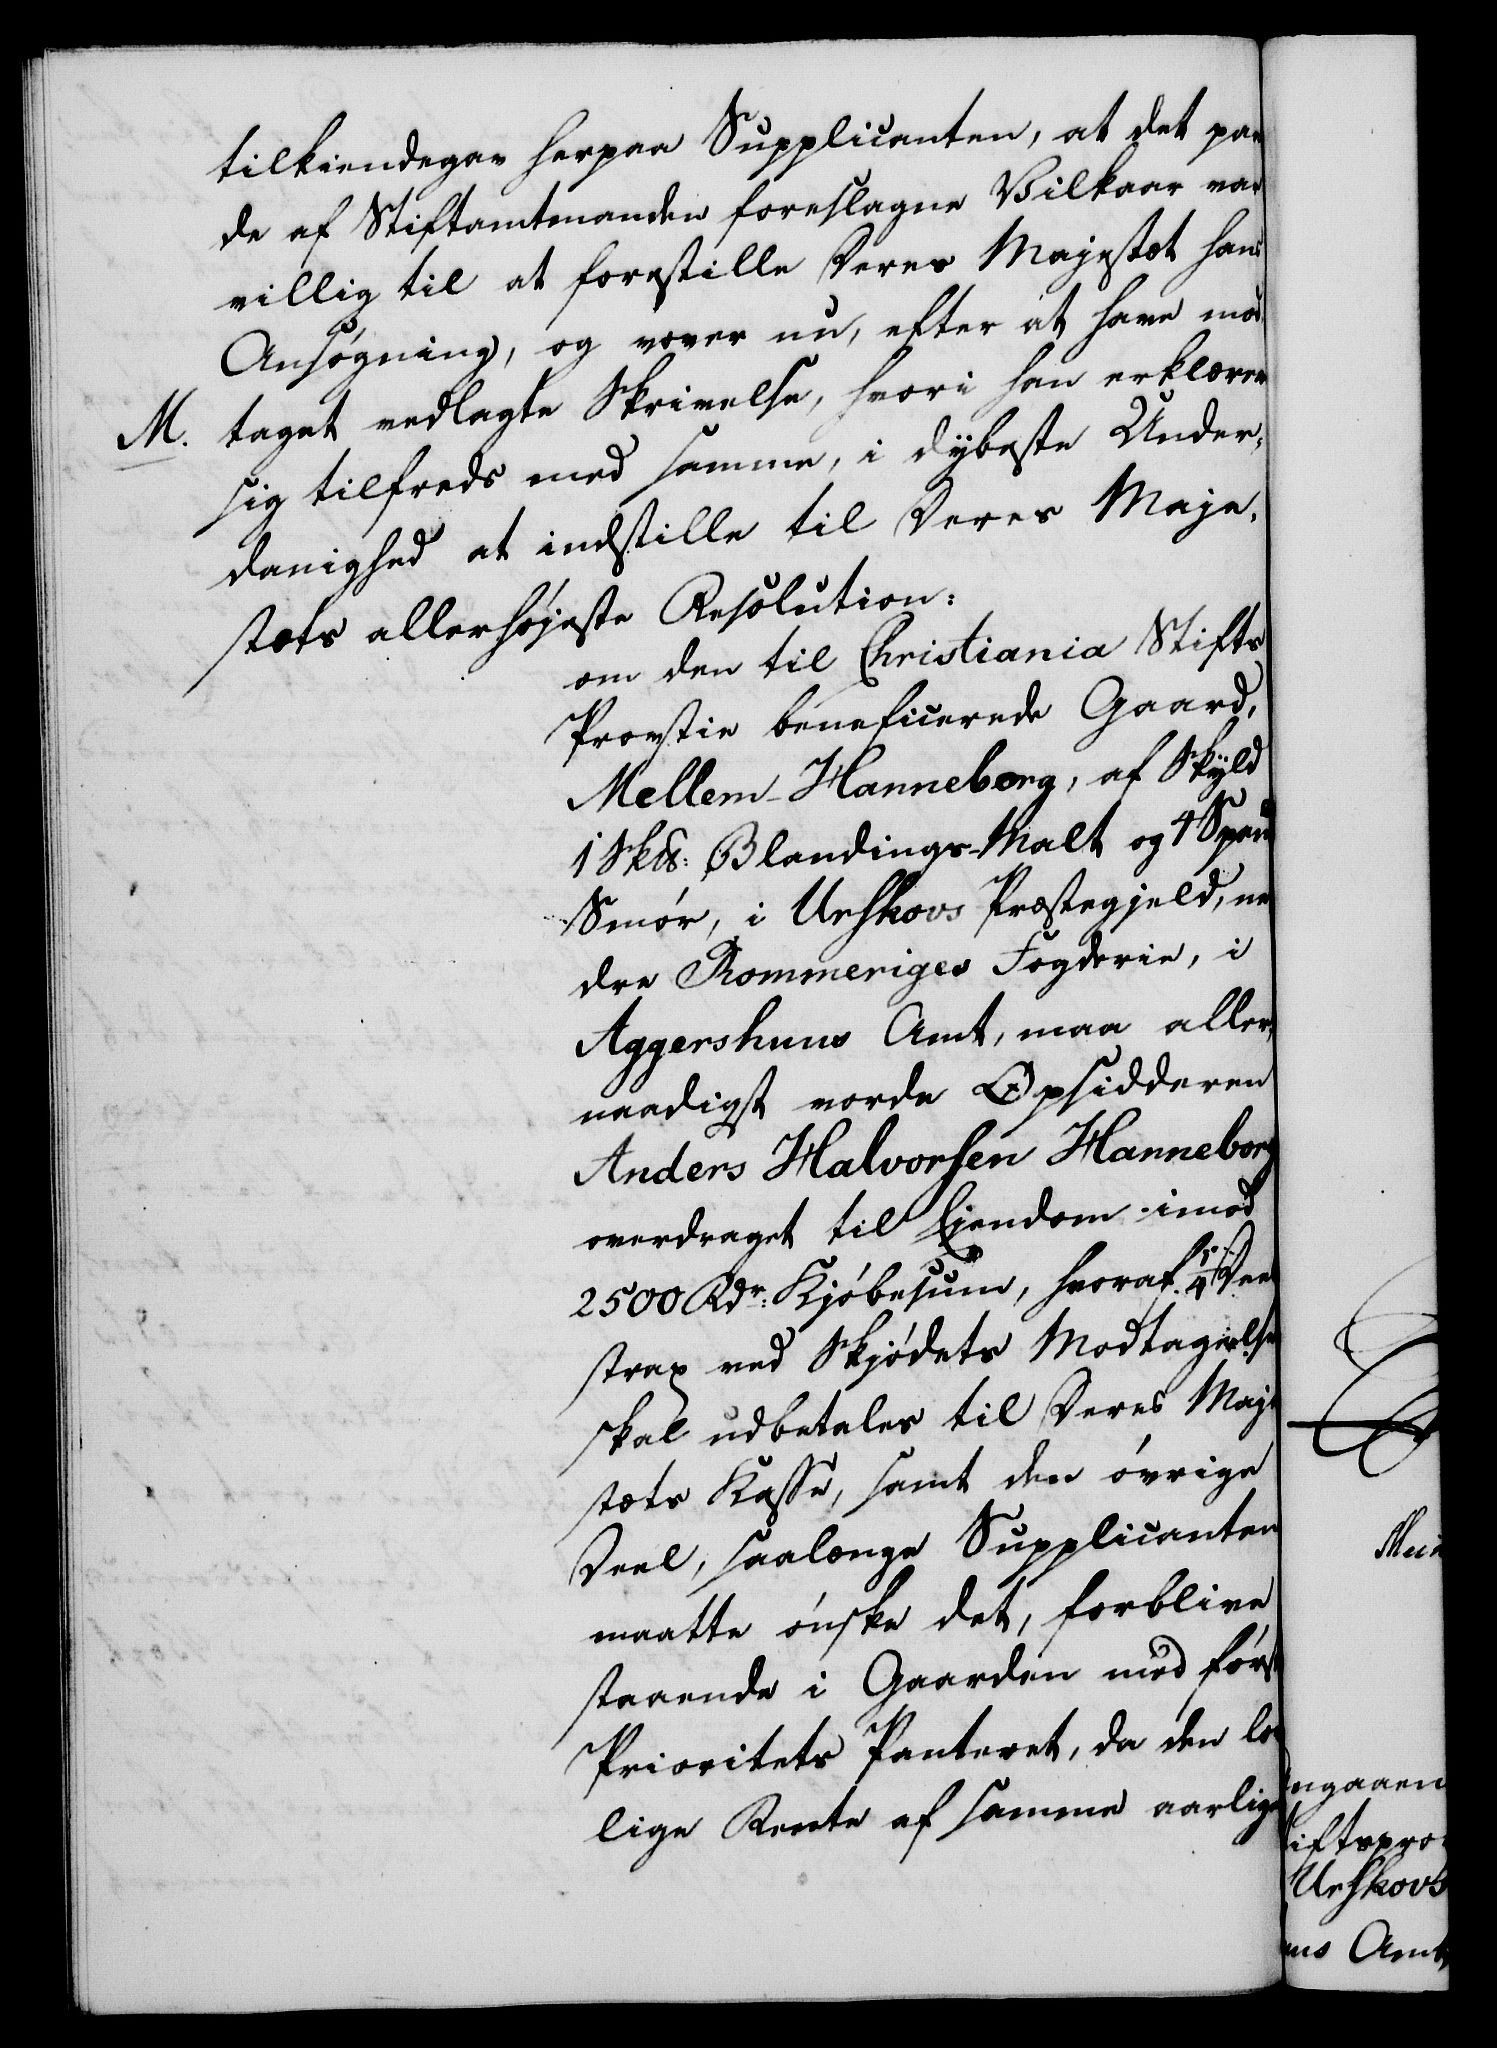 tilkiendegav herpaa Supplicanten, at det paa
de af Stiftamtmanden foreslagne Vilkaar var
villig til at forestille Deres Majestæt hans
Ansøgning, og vover nu, efter at have mod
M. taget vedlagte Skrivelse, hvori han erklærer
sig tilfreds med samme, i dybeste Under,
danighed at indstille til Deres Maje,
stæts allerhøjeste Resolution:
om den til Christiania Stifts
Provstie beneficerede Gaard,
Mellem-Hanneborg, af Skyld
1 Sk℔: Blandings-Malt og 4 Spand
Smør, i Urskovs Præstegjeld, ne
dre Rommeriges Fogderie, i
Aggershuus Amt, maa aller,
naadigst vorde Opsidderen
Anders Halvorsen Hanneborg
overdraget til Ejendom imod
2500 Rdr: Kjøbesum, hvoraf 1/4 Deel
strax ved Skjødets Modtagelse
skal udbetales til Deres Maje
stæts Kasse, samt den øvrige
Deel, saalænge Supplicanten
maatte ønske det, forblive
staaende i Gaarden med først
Prioritets Panteret, da den lo
lige Rente af samme aarlig
ngaaen
iftspro-
Urskovs
uus Amt,